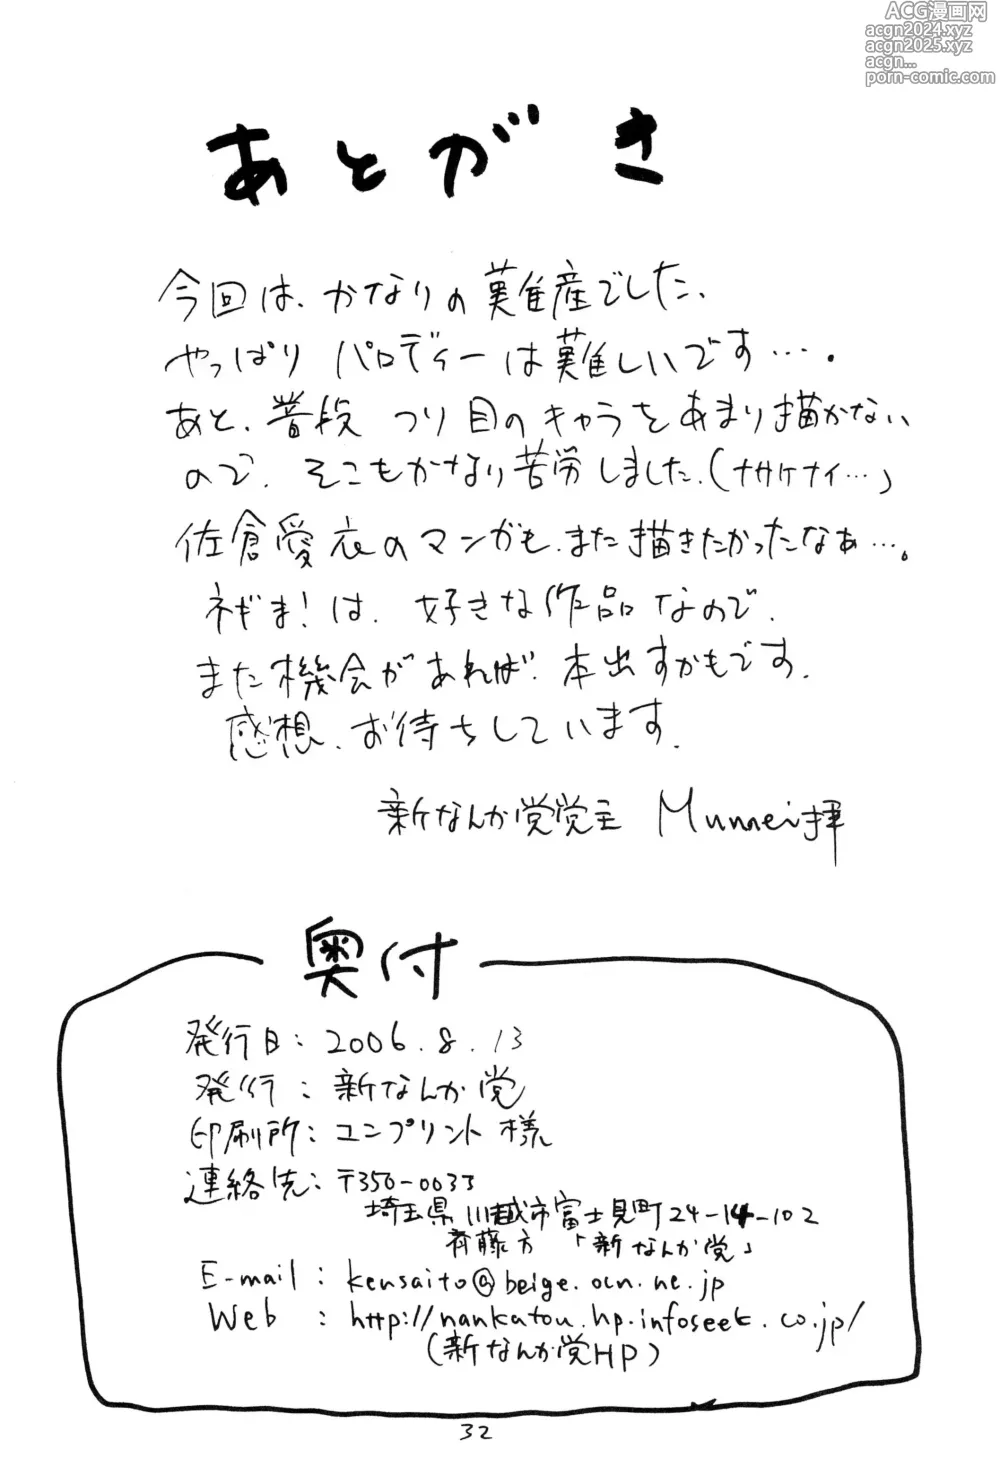 ACG漫画网
acgn2024.xyz
acgn2025.xyz
acgn...
porn-comic.com
あとがき
今回は、かなりの難産でした、
やっぱり パロディーは難しいです…。
あと、普段 つり目のキャラをあまり描かない
ので、そこもかなり苦労しました、(ナサケナイ…」
佐倉愛衣のマンガも、また描きたかったなぁ…。
ネギま!は、好きな作品なので、
また機会があれば、本出すかもです、
感想、お待ちしています、
新なんか党党主 Munnei拝
奥付
発行日:2006.8.13
発行:新なんか党
印刷所:ユンプリント様
連絡先:〒350-0033
埼玉県川越市富士見町24-14-102
斉藤方 「新なんか党」
E-mail : kensaito@beige.ocn.ne.jp
Web : http://nankatou.hp.infoseek.co.jp/
(新なんか党HP)
32